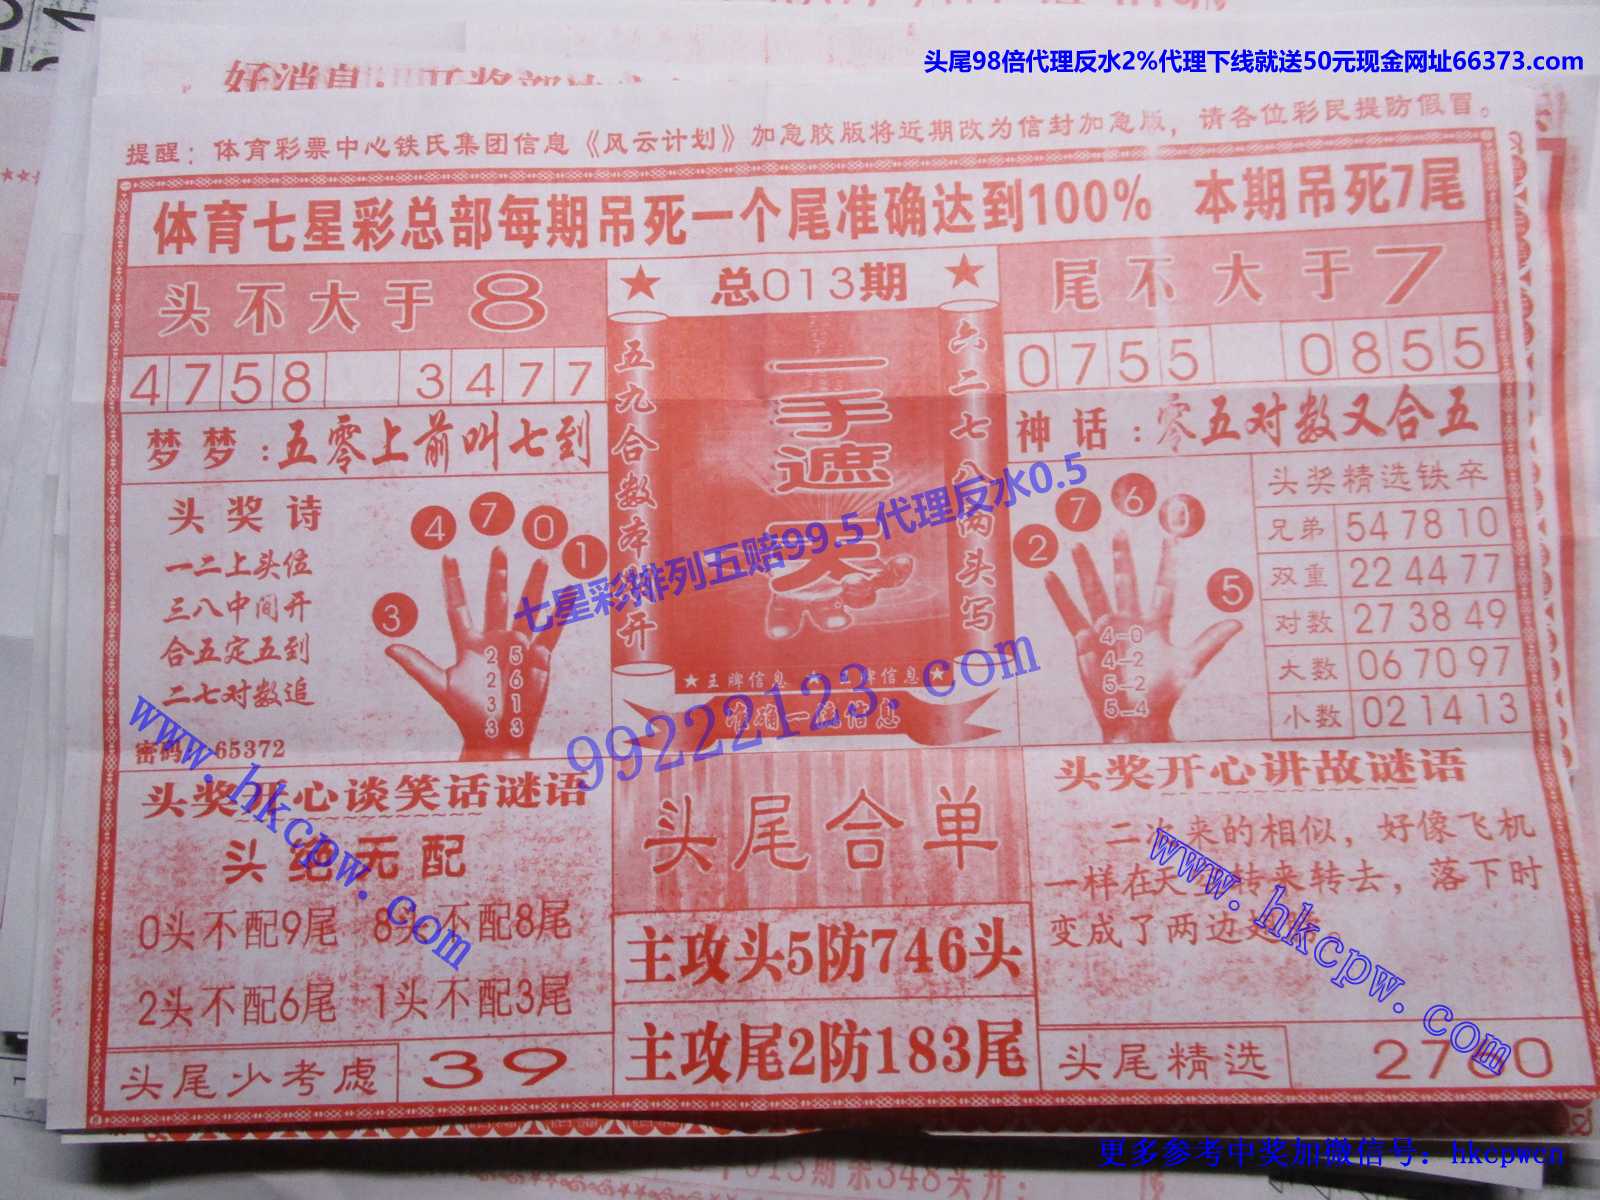 头尾98倍代理反水2%代理下线就送50元现金网址66373.com
好消息：
提醒：体育彩票中心铁氏集团信息《风云计划》加急胶版将近期改为信封加急版，请各位彩民提防假冒。
体育七星彩总部每期吊死一个尾准确达到100% 本期吊死7尾
头不大于8
4758 3477
梦梦：五零上前叫七到
头奖诗
一二上头位
三八中间开
合五定五到
二七对数追
密码 65372
3 4 7 0 1
2 5
2 6
3 1
3 3
总013期
五九合数本 开
一手遮天
六二七八两头写
★王牌信息★王牌信息★
准确一流信息
尾不大于7
0755 0855
神话：零五对数又合五
2 7 6 0 5
4-0
4-2
5-2
5-4
头奖精选铁卒
兄弟 54 78 10
双重 22 44 77
对数 27 38 49
大数 06 70 97
小数 02 14 13
七星彩排列五赔99.5 代理反水0.5
99222123.com
www.hkcpw.com
www.hkcpw.com
头奖开心谈笑话谜语
头绝无配
0头不配9尾 8头不配8尾
2头不配6尾 1头不配3尾
头尾少考虑 39
头尾合单
主攻头5防746头
主攻尾2防183尾
头奖开心讲故谜语
二次来的相似，好像飞机
一样在天 转来转去，落下时
变成了两边
头尾精选 27 0
更多参考中奖加微信号：hkcpwcn